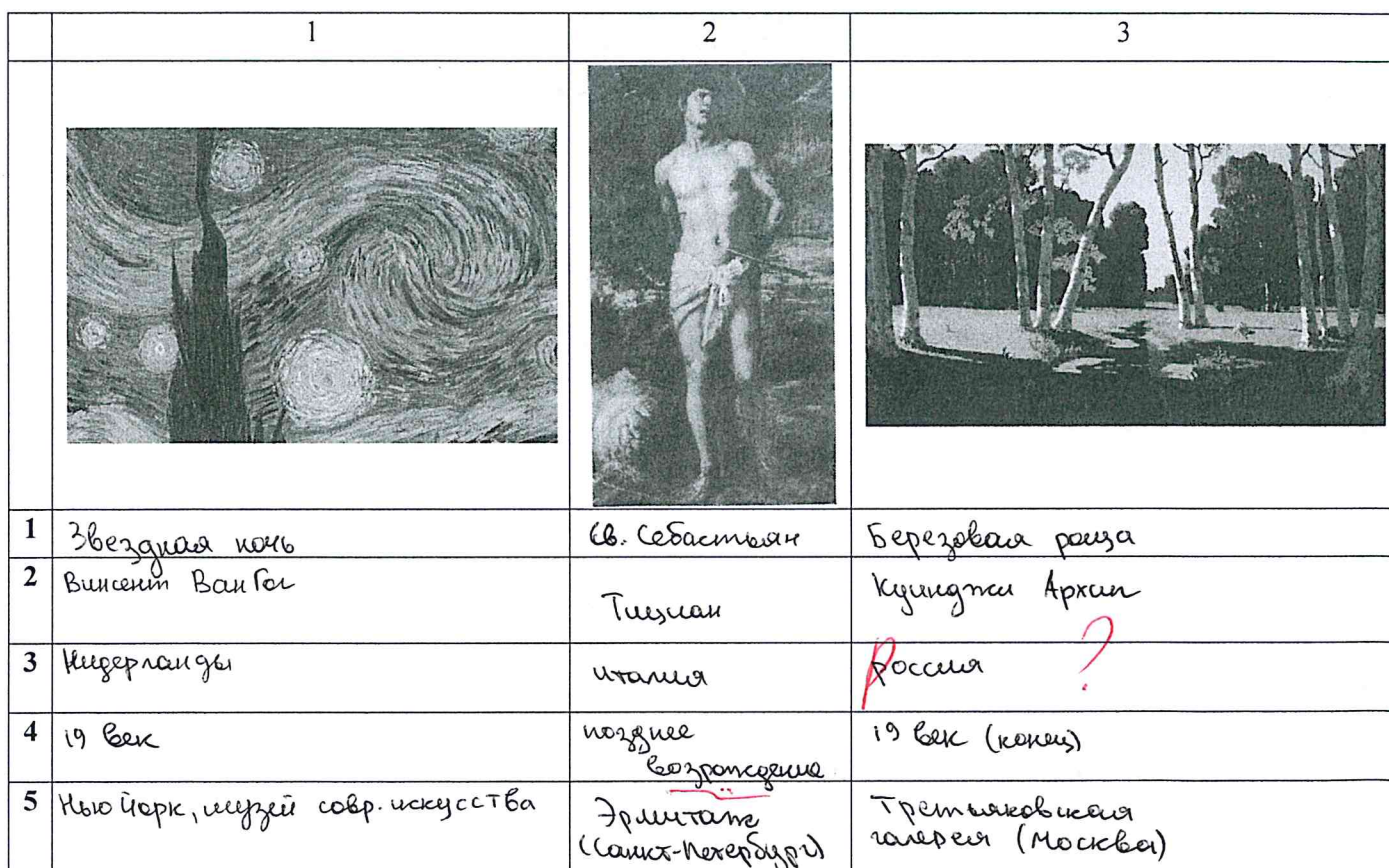 1 2 3
1 Звездная ночь Св. Себастьян Березовая роща
2 Винсент Ван Гог Тициан Куинджи Архип
3 Нидерланды италия россия ?
4 19 век позднее возрождение 19 век (конец)
5 Нью Йорк, музей совр. искусства Эрмитаж (Санкт-Петербург) Третьяковская галерея (Москва)